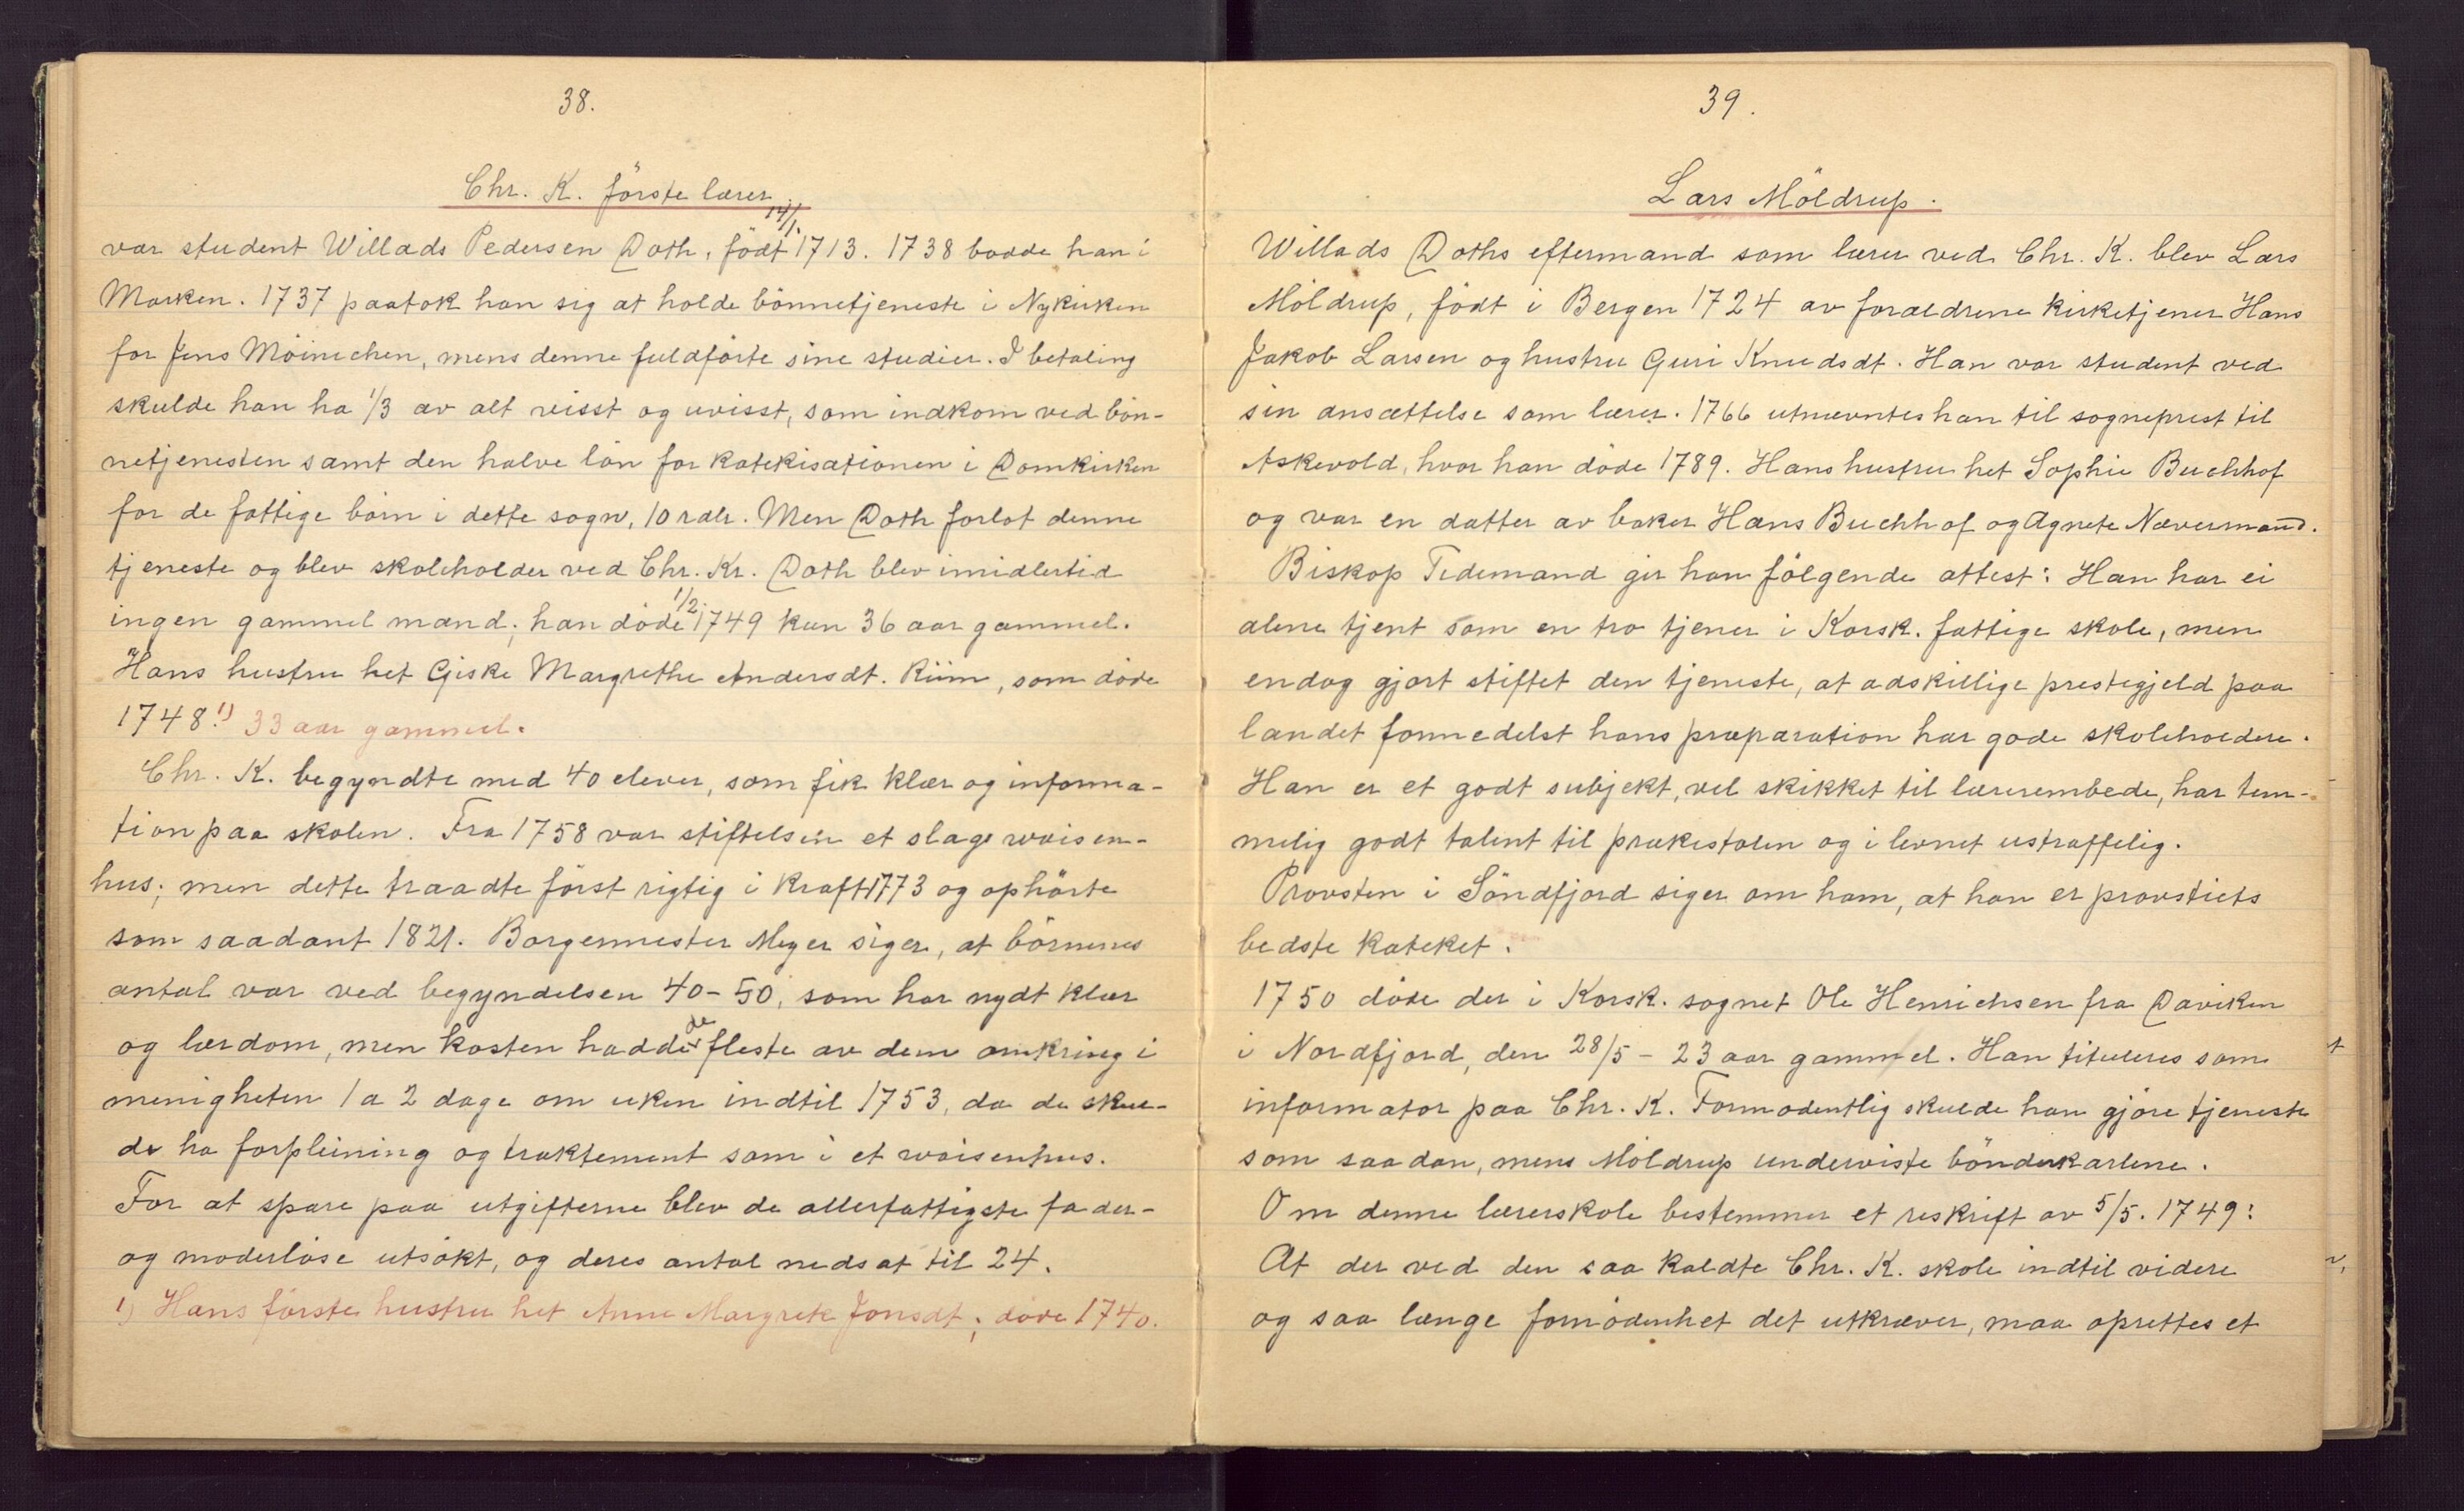 38.
Chr. K. förste lærer
var student Willads Pedersen Doth, födt 14/1. 1713. 1738 bodde han i
Marken. 1737 paatok han sig at holde bönnetjeneste i Nykirken
for Jens Möinichen, mens denne fuldförte sine studier. I betaling
skulde han ha 1/3 av alt visst og uvisst, som indkom ved bön-
netjenesten samt den halve lön for katekisationen i Domkirken
for de fattige börn i dette sogn, 10 rdlr. Men Doth forlot denne
tjeneste og blev skoleholder ved Chr. Kr. Doth blev imidlertid
ingen gammel mand; han döde 1/2. 1749 kun 36 aar gammel.
Hans hustru het Giske Margrethe Andersdt. Riim, som döde
1748.1) 33 aar gammel.
Chr. K. begyndte med 40 elever, som fik klær og informa-
tion paa skolen. Fra 1758 var stiftelsen et slags waisen-
hus; men dette traadte först rigtig i kraft 1773 og ophörte
som saadant 1821. Borgermester Meyer siger, at börnenes
antal var ved begyndelsen 40-50, som har nydt klær
og lærdom, men kosten hadde de fleste av dem omkring i
menigheten 1 a 2 dage om uken indtil 1753, da de skul-
de ha forpleining og traktement som i et waisenhus.
For at spare paa utgifterne blev de allerfattigste fader-
og moderlöse utsökt, og deres antal nedsat til 24.
1) Hans förste hustru het Anne Margrete Jonsdt; döde 1740.
39.
Lars Möldrup.
Willads Doths eftermand som lærer ved Chr. K. blev Lars
Möldrup, födt i Bergen 1724 av forældrene kirketjener Hans
Jakob Larsen og hustru Guri Knudsdt. Han var student ved
sin ansættelse som lærer. 1766 utnævntes han til sogneprest til
Askevold, hvor han döde 1789. Hans hustru het Sophie Buchhof
og var en datter av baker Hans Buchhof og Agnete Nævermand.
Biskop Tidemand gir han fölgende attest: Han har ei
alene tjent som en tro tjener i Korsk. fattige skole, men
endog gjort stiftet den tjeneste, at adskillige prestegjeld paa
landet formedelst hans præparation har gode skoleholdere.
Han er et godt subjekt, vel skikket til lærerembede, har tem-
melig godt talent til prækestolen og i levnet ustraffelig.
Provsten i Söndfjord siger om ham, at han er provstiets
bedste kateket.
1750 döde der i Korsk. sognet Ole Henrichsen fra Daviken
i Nordfjord, den 28/5 - 23 aar gammel. Han tituleres som
informator paa Chr. K. Formodentlig skulde han gjöre tjeneste
som saadan, mens Möldrup underviste bönderkarlene.
Om denne lærerskole bestemmer et reskrift av 5/5. 1749:
At der ved den saa kaldte Chr. K. skole indtil videre
og saa længe fornödenhet det utkræver, maa oprettes et